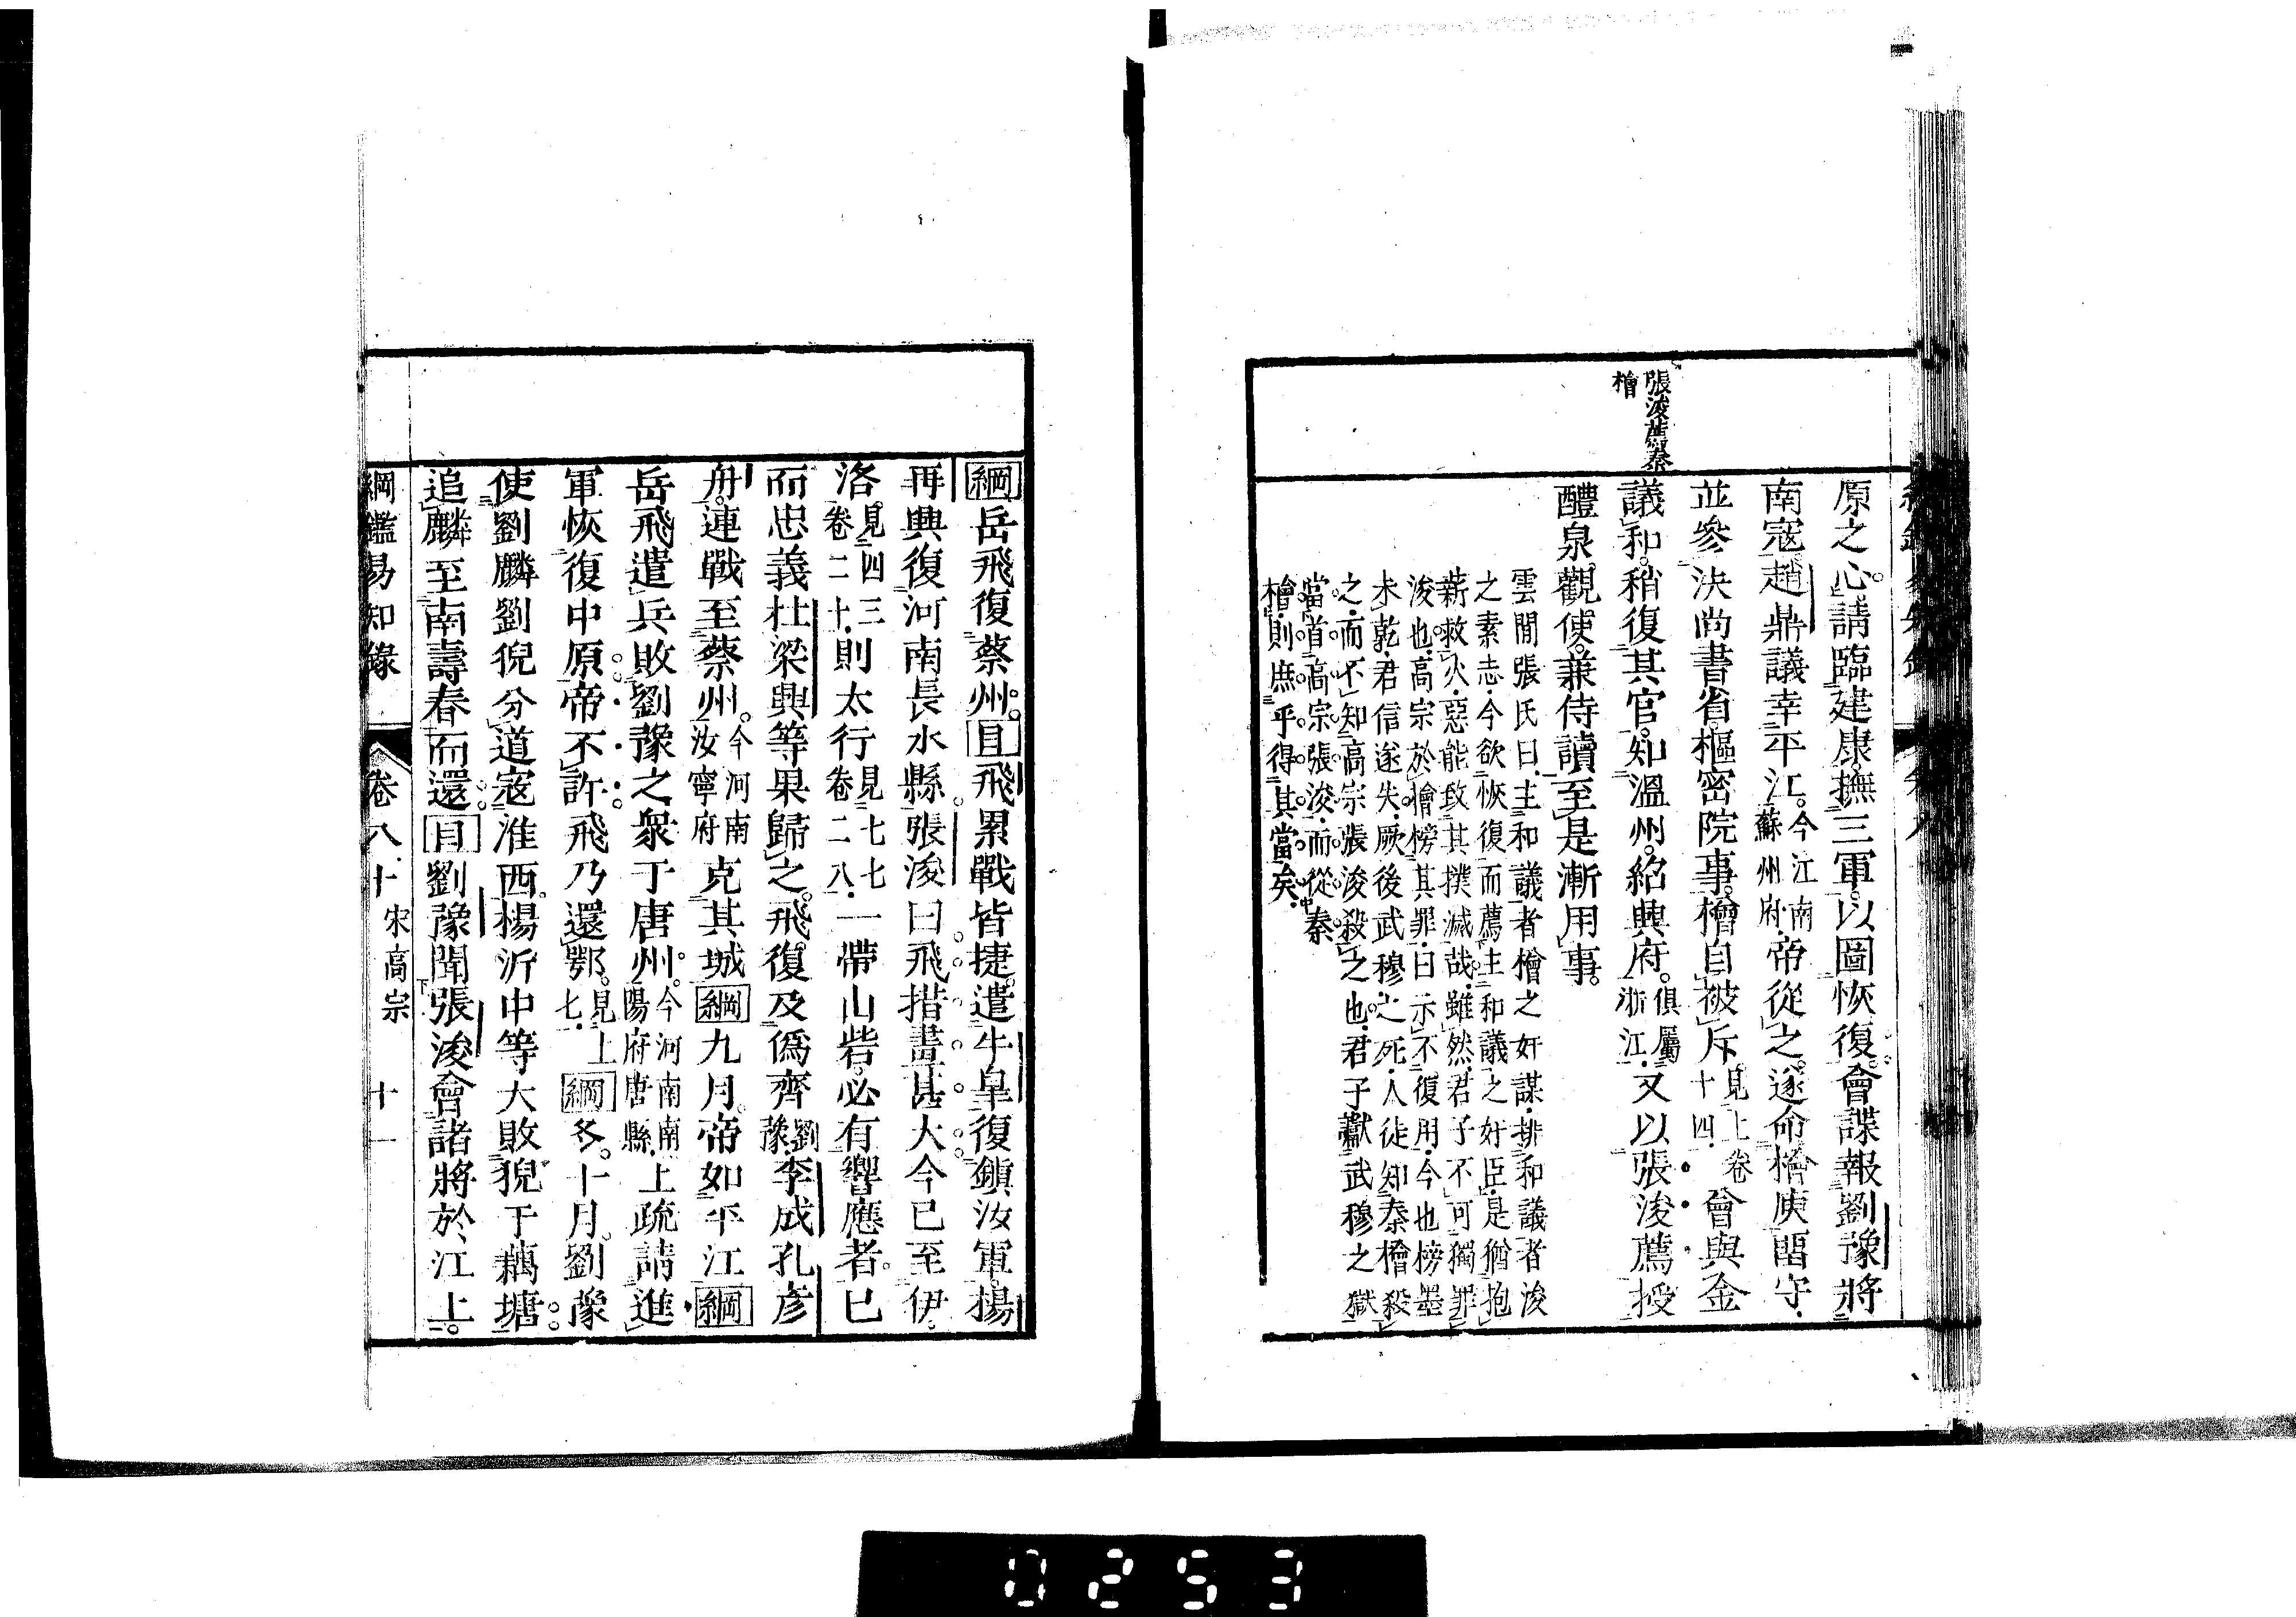 張浚薦秦
檜
原之心。請臨建康撫三軍。以圖恢復。會諜報劉豫將
南寇。趙鼎議幸平江。今江南蘇州府。帝從之。遂命檜庾留守。
並參決尚書省。樞密院事。檜自被斥。見上卷十四。會與金
議和。稍復其官。知溫州。紹興府。俱屬浙江。又以張浚薦授
醴泉觀使。兼侍讀。至是漸用事。
雲間張氏曰。主和議者檜之奸謀。排和議者浚
之素志。今欲恢復而薦主和議之奸臣。是猶抱
薪救火。惡能致其撲滅哉。雖然。君子不可獨罪
浚也。高宗於檜榜其罪。曰示不復用。今也榜墨
未乾。君信遂失。厥後武穆之死。人徒知秦檜殺
之。而不知高宗張浚殺之也。君子讞武穆之獄
當首高宗。張浚。而從秦
檜。則庶乎得其當矣。
綱岳飛復蔡州。目飛累戰皆捷。遣牛皐復鎭汝軍。楊
再興復河南長水縣。張浚曰飛措畫甚大今已至伊。
洛。見四三卷二十。則太行見七七卷二八。一帶山砦。必有響應者。已
而忠義社梁興等果歸之。飛復及偽齊劉豫。李成孔彥
舟。連戰至蔡州。今河南汝寧府克其城綱九月。帝如平江綱
岳飛遣兵敗劉豫之衆于唐州。今河南南陽府唐縣。上疏請進
軍恢復中原。帝不許。飛乃還鄂。見上七。綱冬。十月。劉豫
使劉麟劉猊分道寇淮西。楊沂中等大敗猊于藕塘。
追麟至南壽春而還。目劉豫聞張浚會諸將於江上。
綱鑑易知錄 卷八十 宋高宗 十一
0253